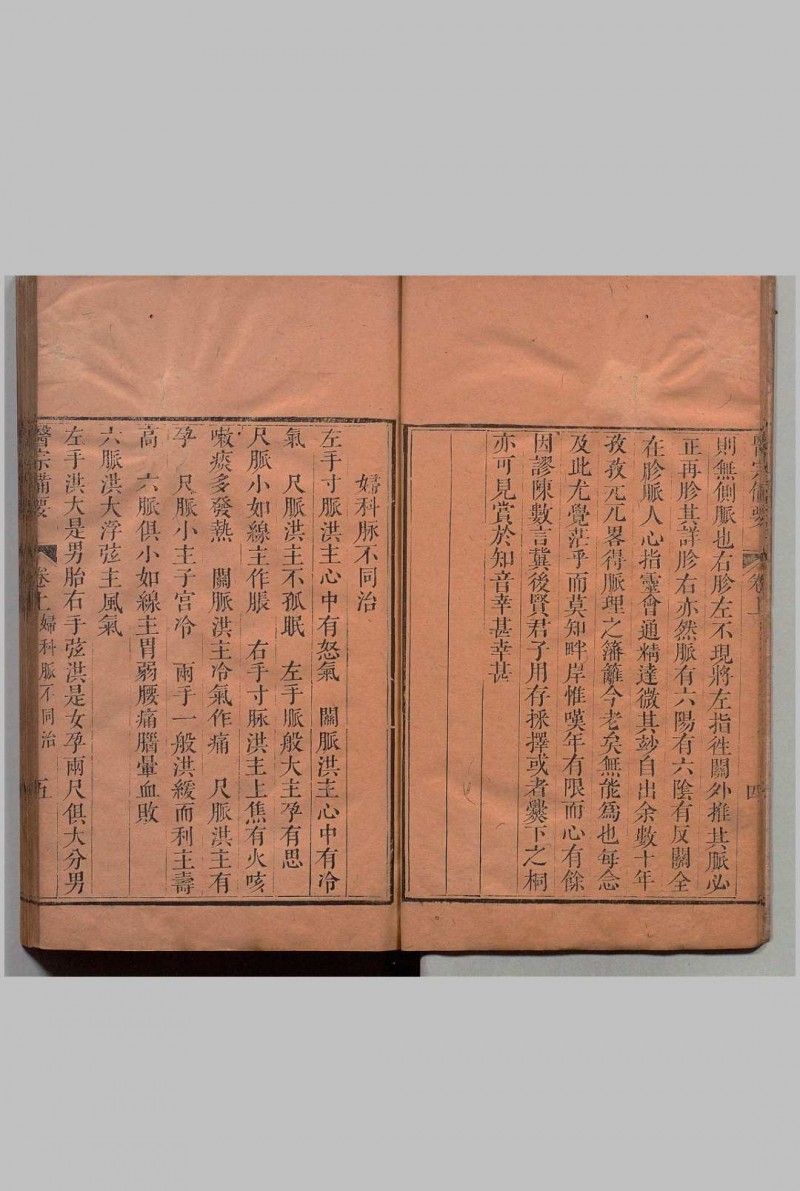 醫宗備要 卷上 四
則無側脈也右胗左不現將左指徃關外推其脈必
正再胗其詳胗右亦然脈有六陽有六陰有反關全
在胗脈人心指靈會通精達微其玅自出余數十年
孜孜元元畧得脈理之籓籬今老矣無能爲也每念
及此尤覺茫乎而莫知畔岸惟嘆年有限而心有餘
因謬陳數言冀後賢君子用存採擇或者爨下之桐
亦可見賞於知音幸甚幸甚
婦科脈不同治
左手寸脈洪主心中有怒氣 關脈洪主心中有冷
氣 尺脈洪主不孤眠 左手脈般大主孕有思
尺脈小如線主作脹 右手寸脉洪主上焦有火咳
嗽痰多發熱 關脈洪主冷氣作痛 尺脈洪主有
孕 尺脈小主子宮冷 兩手一般洪緩而利主壽
高 六脈俱小如線主胃弱腰痛腦暈血敗
六脈洪大浮弦主風氣
左手洪大是男胎右手弦洪是女孕兩尺俱大分男
醫宗備要 卷上 婦科脈不同治 五